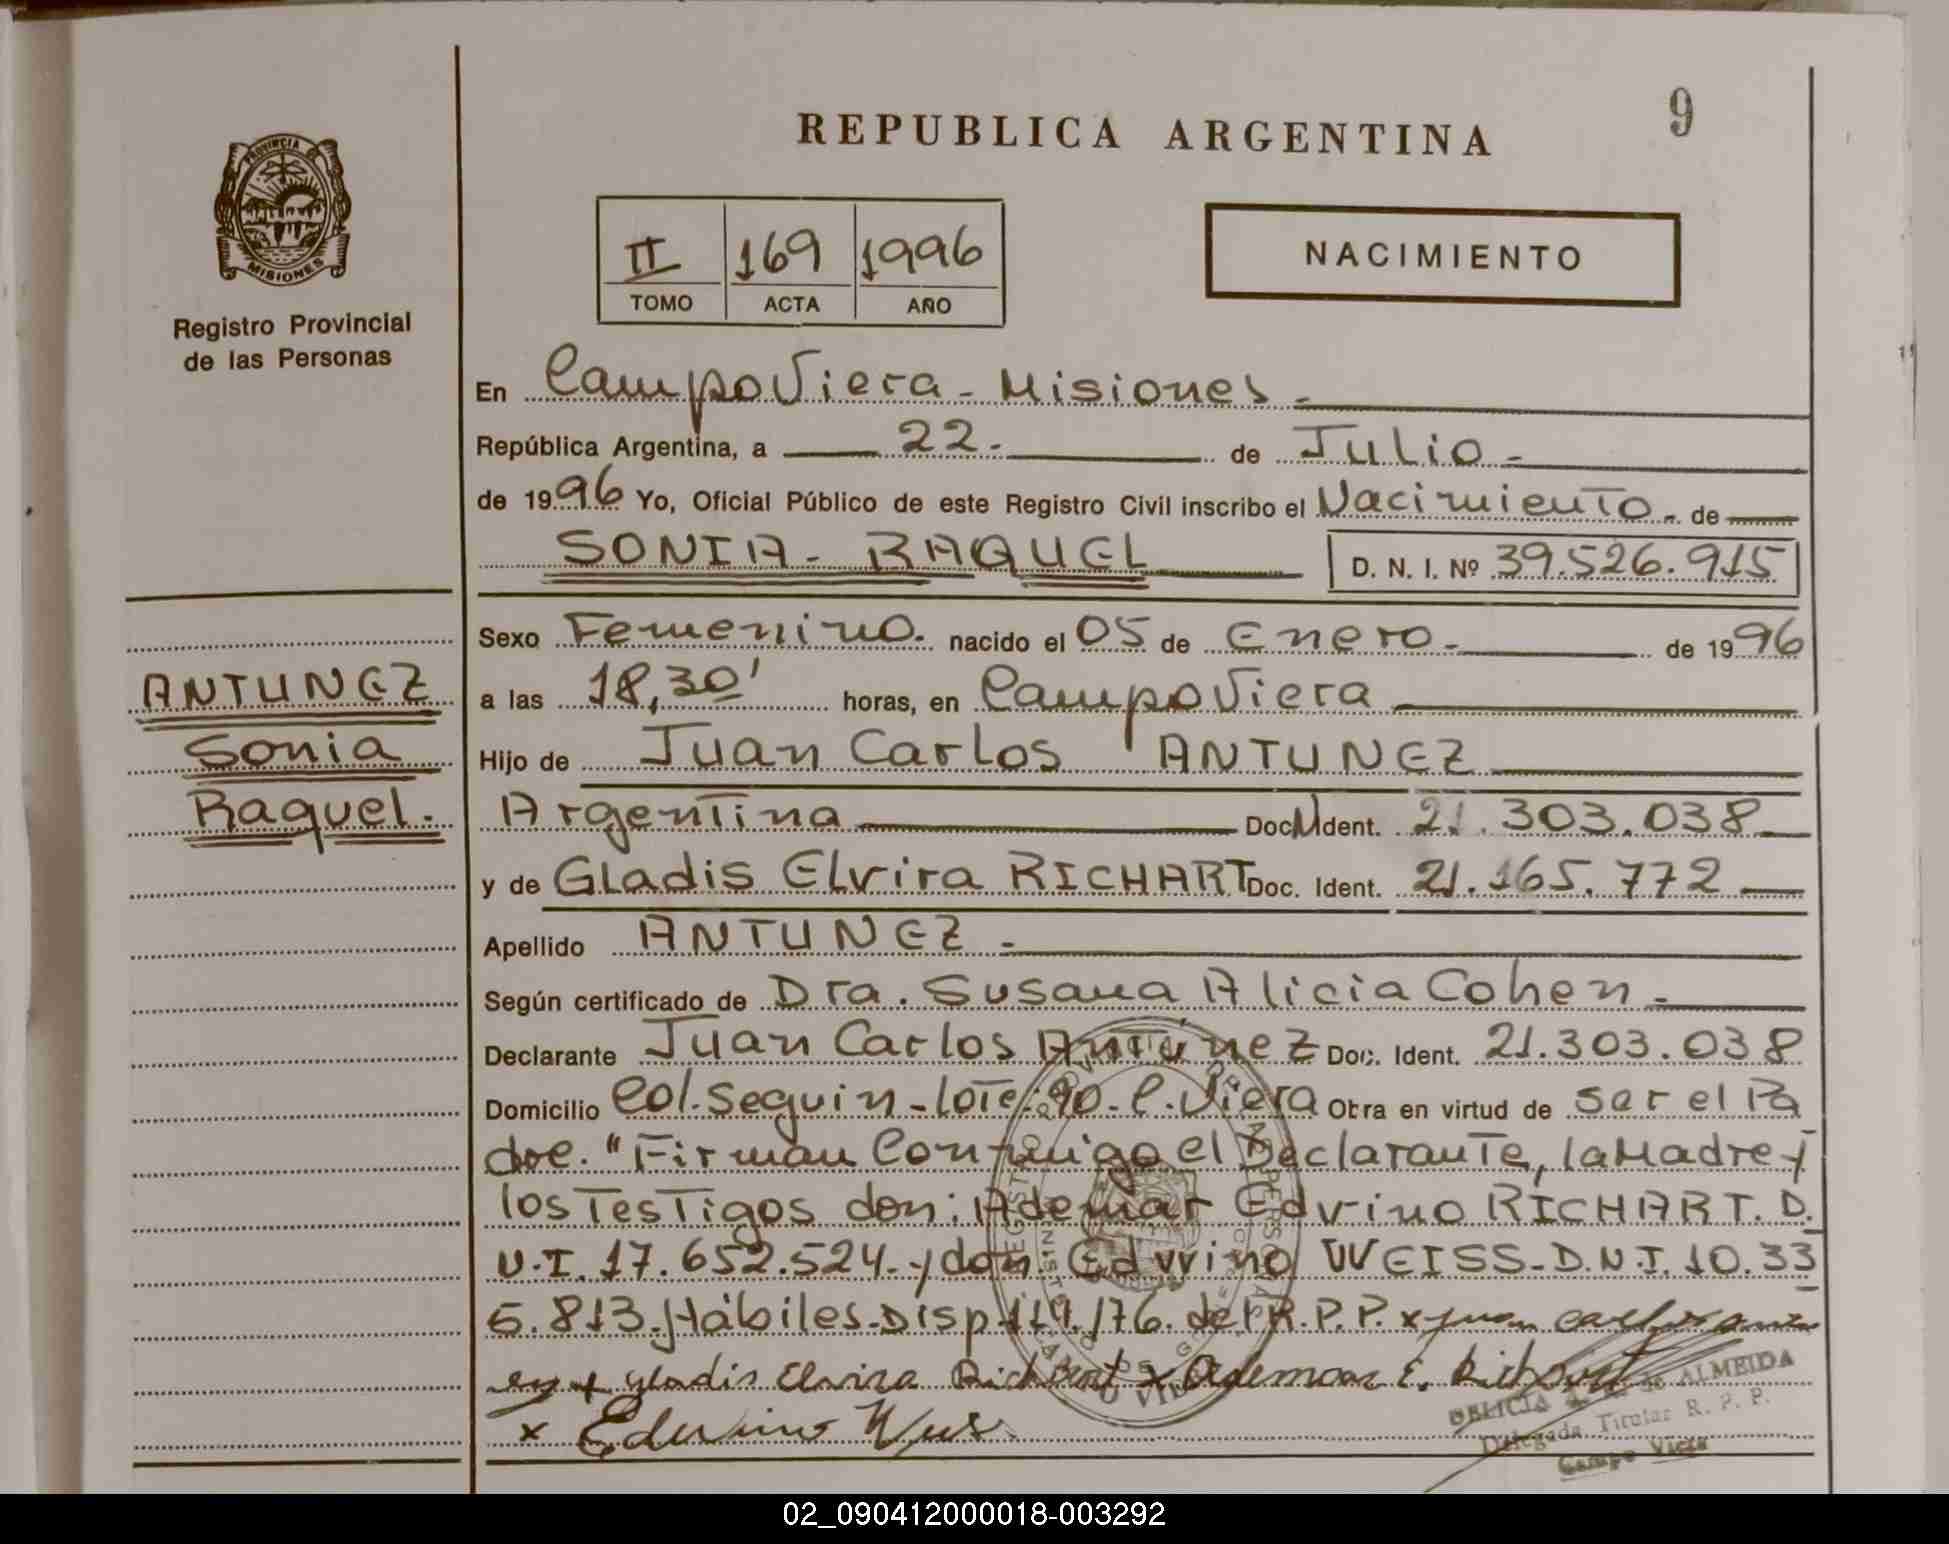 9
REPUBLICA ARGENTINA
PROVINCIA DE
MISIONES
Registro Provincial
de las Personas
II 169 1996
TOMO ACTA AÑO
NACIMIENTO
En Campo Viera - Misiones -
República Argentina, a 22- de Julio -
de 1996 Yo, Oficial Público de este Registro Civil inscribo el Nacimiento - de
SONIA - RAQUEL D. N. I. Nº 39.526.915
ANTUNEZ
Sonia
Raquel.
Sexo Femenino. nacido el 05 de Enero - de 1996
a las 18,30' horas, en Campo Viera
Hijo de Juan Carlos ANTUNEZ
Argentina Doc. Ident. 21.303.038
y de Gladis Elvira RICHART Doc. Ident. 21.165.772
Apellido ANTUNEZ -
Según certificado de Dra. Susana Alicia Cohen -
Declarante Juan Carlos Antúnez Doc. Ident. 21.303.038
Domicilio Col. Seguin - lote: 90 - C. Viera Obra en virtud de ser el Pa
dre. "Firman Conmigo el Declarante, la Madre y
los Testigos don: Ademar Edvino RICHART. D.
N.I. 17.652.524 - y don Edwino WEISS - D.N.I. 10.33
5.813. Hábiles - Disp. 114/76. del R.P.P. x Juan Carlos Antun
ez x Gladis Elvira Richart x Ademar E. Richart
x Edwino
DELICIA DE ALMEIDA
Delegada Titular R. P. P.
Campo Viera
02_090412000018-003292